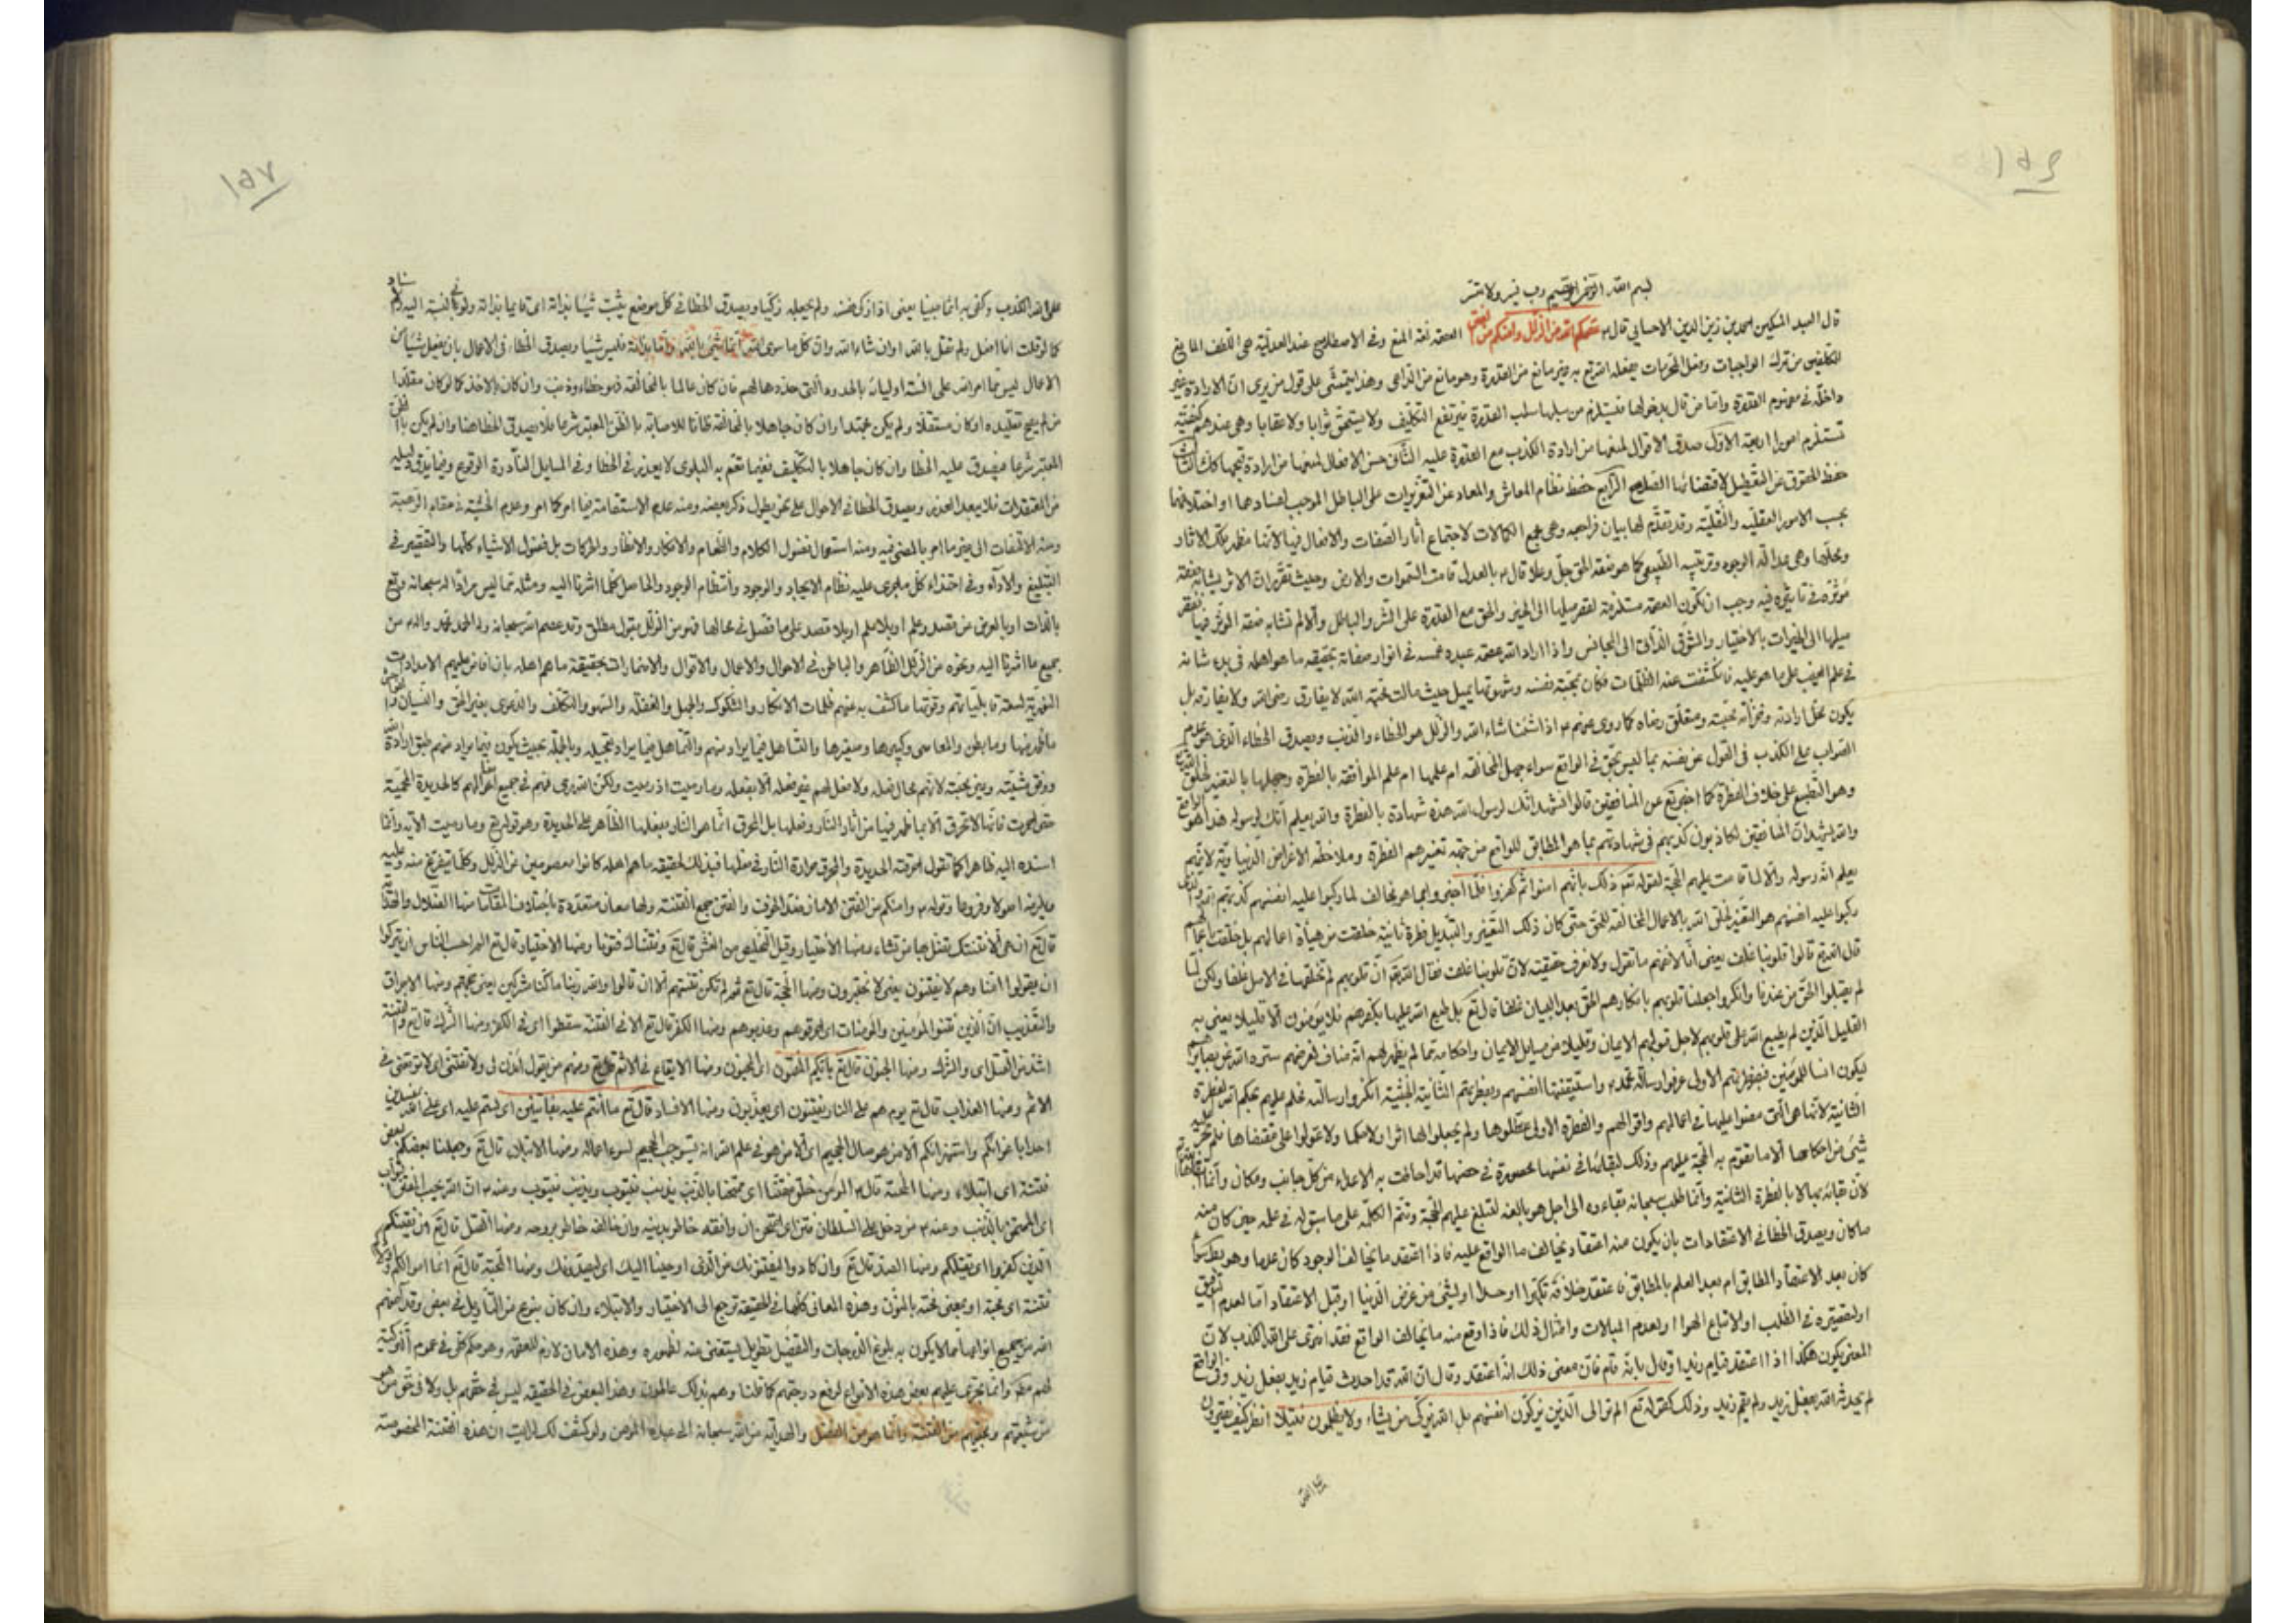 ١٥٦
بسم الله الرحمن الرحيم رب يسر ولا تعسر
قال العبد المسكين احمد بن زين الدين الاحسائي قال ع عصمكم الله من الزلل وامنكم من الفتن العصمة لغة المنع وفي الاصطلاح عند العدلية هي اللطف المانع
للمكلفين من ترك الواجبات وفعل المحرمات يفعله الله تع به غير مانع من القدرة وهو مانع من الداعي وهذا يتمشى على قول من يرى ان الارادة غير
داخلة في مفهوم القدرة واما من قال بدخولها فيستلزم من سلبها سلب القدرة فيرتفع التكليف ولا يستحق ثوابا ولا عقابا وهي عندهم كيفية
تستلزم امورا اربعة الاول صدق الاقوال لمنعها من ارادة الكذب مع القدرة عليه الثاني حسن الافعال لمنعها من ارادة قبيحها كذلك الثالث
حفظ الحقوق عن التعطيل لاقتضائها الصلاح الرابع حفظ نظام المعاش والمعاد عن التغييرات على الباطل الموجب لفسادهما او اختلالهما
بحسب الامور العقلية والنقلية وقد تقدم لها بيان فراجعه وهي جميع الكمالات لاجتماع آثار الصفات والافعال فيها لانها مظهر تلك الاثار
ومحلها وهي عدالة الوجود وترتيبه الطبيعي كما هو صفة الحق جل وعلا قال ع بالعدل قامت السموات والارض وحيث تقرر ان الاثر يشابه صفة
مؤثره في تأثيره فيه وجب ان تكون العصمة مستلزمة لقصر ميلها الى الخير والحق مع القدرة على الشر والباطل والا لم تشابه صفة المؤثر فيها
ميلها الى الخيرات بالاختيار والشوق الذاتي الى المجانس واذا اراد الله عصمة عبده غمسه في انوار صفاته بحقيقة ما هو اهله في بدء شانه
في علم الغيب على ما هو عليه فانكشفت عنه الظلمات فكان بمحبته نفسه وشهوتها يميل حيث مالت محبة الله لا يفارق رضى الله ولا يفارقه بل
يكون محل ارادته وخزانة محبته ومتعلق رضاه كما روي عنهم ع اذا شئنا شاء الله والزلل هو الخطاء والذنب ويصدق الخطاء الذي هو عدم
الصواب على الكذب في القول عن نفسه بما ليس بحق في الواقع سواء جهل المخالفة ام علمها ام علم الموافقة بالفطرة وجهلها بالتغيير لخلق الله
وهو التطبع على خلاف الفطرة كما اخبر تع عن المنافقين قالوا نشهد انك لرسول الله هذه شهادة بالفطرة والله يعلم انك لرسوله هذا هو الواقع
والله يشهد ان المنافقين لكاذبون كذبهم في شهادتهم بما هو المطابق للواقع من جهة تغييرهم الفطرة وملاحظة الاغراض الدنياوية لانهم
يعلم انه رسوله والا لما قامت عليهم الحجة لقوله تع ذلك بانهم امنوا ثم كفروا فلما اخبروا بما هو مخالف لما ركبوا عليه انفسهم كذبهم الله
ركبوا عليه انفسهم هو التغيير لخلق الله بالاعمال المخالفة للحق حتى كان ذلك التغيير والتبديل فطرة ثانية خلقت من هيأة اعمالهم بل خلقت
قال الله تع قالوا قلوبنا غلف يعني انا لا نفهم ما تقول ولا نعرف حقيقته لان قلوبنا غلف فقال الله تع ان قلوبهم لم نخلقها في الاصل غلفا ولكن لما
لم يقبلوا الحق من عندنا وانكروا جعلنا قلوبهم بانكارهم الحق بعد البيان غلفا قال تع بل طبع الله عليها بكفرهم فلا يؤمنون الا قليلا يعني به
القليل الذين لم يطبع الله على قلوبهم لاجل قبولهم الايمان وقليلا من مسايل الايمان واحكامه مما لم يظهر لهم انه مناف لغرضهم ستره الله عن بصائرهم
ليكون انسا للمؤمنين فبفطرتهم الاولى عرفوا رسالة محمد ص واستيقنتها انفسهم وبفطرتهم الثانية الخبيثة انكروا رسالته فحكم عليهم بحكم الفطرة
الثانية لانها هي التي مضوا عليها في اعمالهم واقوالهم والفطرة الاولى عطلوها ولم يجعلوا لها اثرا ولا حكما ولا عولوا على مقتضاها فلم تجر عليهم
شيئ من احكامها الا ما تقوم به الحجة عليهم وذلك لبقائها في نفسها محصورة في حصنها قد احاطت به الاعداء من كل جانب ومكان وانما
لان بقائه بها لا بالفطرة الثانية وانما طلب سبحانه بقاءه الى اجل هو بالغه لتبلغ عليهم الحجة وتتم الكلمة على ما سبق له في علمه حين كان منه
ما كان ويصدق الخطا في الاعتقادات بان يكون منه اعتقاد يخالف ما الواقع عليه فاذا اعتقد ما يخالف الوجود كان عدما وهو سواء
كان بعد الاعتقاد المطابق ام بعد العلم بالمطابق فاعتقد خلافه تكبرا او حسدا او لشئ من غرض الدنيا او قبل الاعتقاد اما لعدم التوفيق
او لتقصيره في الطلب او لاتباع الهوا او لعدم المبالات وامثال ذلك فاذا وقع منه ما يخالف الواقع فقد افترى على الله الكذب لان
المعنى يكون هكذا اذا اعتقد قيام زيد او قال بانه قام فان معنى ذلك انه اعتقد وقال ان الله قد احدث قيام زيد بفعل زيد وفي الواقع
لم يحدث الله بفعل زيد ولم يقم زيد وذلك كقوله تع الم تر الى الذين يزكون انفسهم بل الله يزكي من يشاء ولا يظلمون فتيلا انظر كيف يفترون
على الله
١٥٧
على الله الكذب وكفى به اثما مبينا يعني اذا زكى نفسه ولم يجعله زكيا ويصدق الخطا في كل موضع يثبت شيئا بذاته اي قايما بذاته ولو بالنسبة اليه
كما لو قلت انا افعل ولم تقل بالله او ان شاء الله وان كل ما سوى الله انما شئ بالله واما بذاته فليس شيئا ويصدق الخطا في الاعمال بان يفعل شيئا من
الاعمال ليس مما امر الله على السنة اوليائه بالحدود التي حددها لهم فان كان عالما بالمخالفة فهو خطاء وذنب وان كان بالاخذ كما لو كان مقلدا
من لم يصح تقليده او كان مستقلا ولم يكن مجتهدا وان كان جاهلا بالمخالفة ظانا للاصابة بالظن المعتبر شرعا فلا يصدق الخطا هنا وان لم يكن بالظن
المعتبر شرعا فيصدق عليه الخطا وان كان جاهلا بالتكليف ففيما تعم به البلوى لا يعذر في الخطا وفي المسايل النادرة الوقوع وفيما يدق دليله
من المعتقدات فلا يبعد العذر ويصدق الخطا في الاحوال على نحو يطول ذكر بعضه ومنه عدم الاستقامة فيما امر كما امر وعدم الخشية في مقام الرهبة
ومنه الالتفات الى غير ما امر بالمضي فيه ومنه استعمال فضول الكلام والطعام والافكار والانظار والحركات بل فضول الاشياء كلها والتقصير في
التبليغ والاداء وفي احتذاء كل ما جرى عليه نظام الايجاد والوجود وانتظام الوجود والحاصل كلما اشرنا اليه ومثله مما ليس مرادا له سبحانه وتع
بالذات او بالعرض من قصد وعلم او بلا علم او بلا قصد على ما فصل في محالها فهو من الزلل بقول مطلق وقد عصم الله سبحانه وله الحمد محمد واله ص من
جميع ما اشرنا اليه ونحوه من الزلل الظاهر والباطن في الاحوال والاعمال والاقوال والاضمارات بحقيقة ما هم اهله بان افاض عليهم الامدادات
النورية لسعة قابلياتهم وقوتها ما كشف به عنهم ظلمات الانكار والشكوك والجهل والغفلة والسهو والتكلف والدعوى بغير الحق والنسيان والفواحش
ما ظهر منها وما بطن والمعاصي وكبيرها وصغيرها والتساهل فيما يراد منهم والتماهل فيما يراد تعجيله وبالجملة بحيث يكون فيما يراد منهم طبق ارادة الله
ووفق مشيته وعين محبته لانهم محال فعله ولا فعل لهم غير فعله الا بفعله وما رميت اذ رميت ولكن الله رمى فهم في جميع افعالهم كالحديدة المحمية
حتى احمرت فانها لا تحرق الا بما ظهر فيها من آثار النار وفعلها بل المحرق انما هو النار بفعلها الظاهر على الحديدة وهو قوله تع وما رميت الآية وانما
اسنده اليه ظاهرا كما تقول احرقته الحديدة والمحرق حرارة النار في فعلها فبذلك لحقيقة ما هم اهله كانوا معصومين عن الزلل وكلما يتفرع منه وعليه
ويلزمه اصولا وفروعا وقوله ع وامنكم من الفتن الامان ضد الخوف والفتن جمع الفتنة ولها معان متعددة باختلاف المقامات منها الضلال والحق
قال تع ان هي الا فتنتك تضل بها من تشاء ومنها الاختبار وقيل التخليص من الغش قال تع وفتناك فتونا ومنها الاختبار قال تع الم احسب الناس ان يتركوا
ان يقولوا امنا وهم لا يفتنون يعني لا يختبرون ومنها الحجة قال تع ثم لم تكن فتنتهم الا ان قالوا والله ربنا ما كنا مشركين يعني حجتهم ومنها الاحراق
والتعذيب ان الذين فتنوا المؤمنين والمؤمنات اي احرقوهم وعذبوهم ومنها الكفر قال تع الا في الفتنة سقطوا اي في الكفر ومنها الشرك قال تع والفتنة
اشد من القتل اي والشرك ومنها الجنون قال تع بايكم المفتون اي المجنون ومنها الايقاع في الاثم قال تع ومنهم من يقول ائذن لي ولا تفتني اي لا توقعني في
الاثم ومنها العذاب قال تع يوم هم على النار يفتنون اي يعذبون ومنها الافساد قال تع ما انتم عليه بفاتنين اي لستم عليه اي على الله بمفسدين
احدا باغوائكم واستهزائكم الا من هو صال الجحيم اي الا من هو في علم الله انه يستوجب الجحيم لسوء اعماله ومنها الابتلاء قال تع وجعلنا بعضكم لبعض
فتنة اي ابتلاء ومنها المحنة قال ع المؤمن خلق مفتنا اي ممتحنا بالذنب يذنب فيتوب ويذنب فيتوب ومنه ع ان الله يحب المفتن التواب
اي الممتحن بالذنب ومنه ع من دخل على السلطان فتن اي امتحن ان وافقه خاطر بدينه وان خالفه خاطر بروحه ومنها القتل قال تع ان يفتنكم
الذين كفروا اي يقتلكم ومنها الصد قال تع وان كادوا ليفتنونك عن الذي اوحينا اليك اي ليصدونك ومنها المحبة قال تع انما اموالكم واولادكم
فتنة اي محبة او بمعنى محنة بالحزن وهذه المعاني كلها في الحقيقة ترجع الى الاختبار والابتلاء وان كان بنوع من التأويل في بعض وقد آمنهم
الله من جميع انواعها مما لا يكون به بلوغ الدرجات والتفضيل تطويل ليستغنى عنه لظهوره وهذه الامان لازم للعصمة وهو حكم كلي في عموم
لهم مطهر وانما تجري عليهم بعض هذه الانواع لرفع درجتهم كما قلنا وهم بذلك عالمون وهذا البعض في الحقيقة ليس في حقهم بل ولا في حق
من شيعتهم ومحبيهم من الفتنة وانما هو من الفضل والهداية من الله سبحانه الى عبده المؤمن ولو كشف لك لرايت ان هذه الفتنة المخصوصة